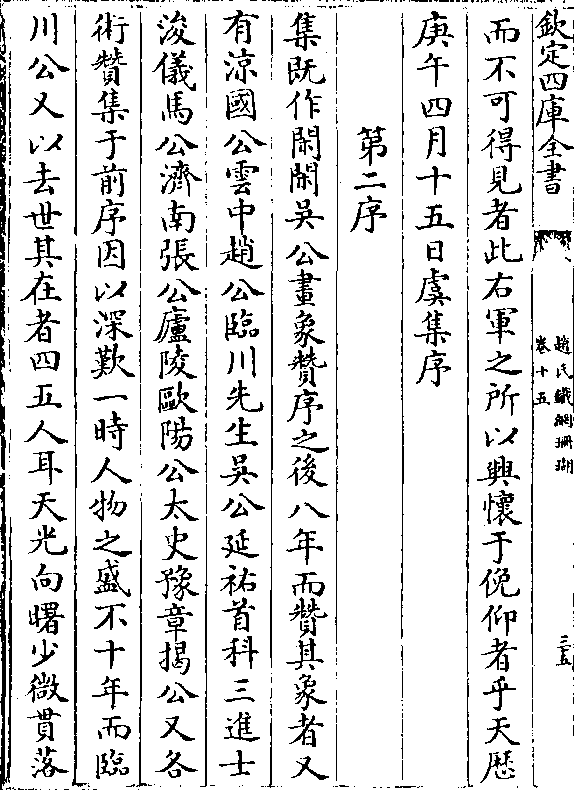 欽定四庫全書
趙氏鐵網珊瑚
卷十五
三五
而不可得見者此右軍之所以興懷于俛仰者乎天厯
庚午四月十五日虞集序
第二序
集既作閑閑吳公畫象贊序之後八年而贊其象者又
有涼國公雲中趙公臨川先生吳公延祐首科三進士
浚儀馬公濟南張公廬陵歐陽公太史豫章揭公又各
術贊集于前序因以深歎一時人物之盛不十年而臨
川公又以去世其在者四五人耳天光向曙少微貫落